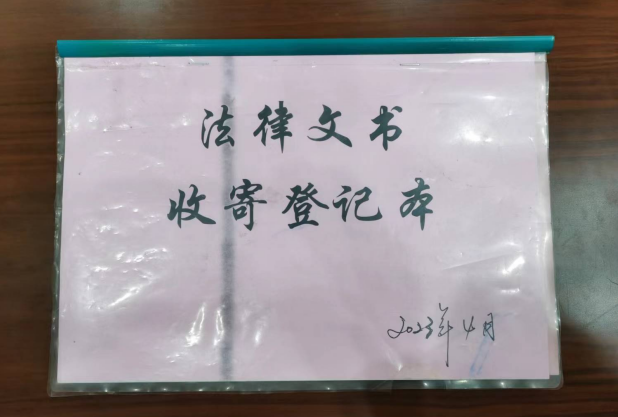 法律文书
收寄登记本
2023年4月